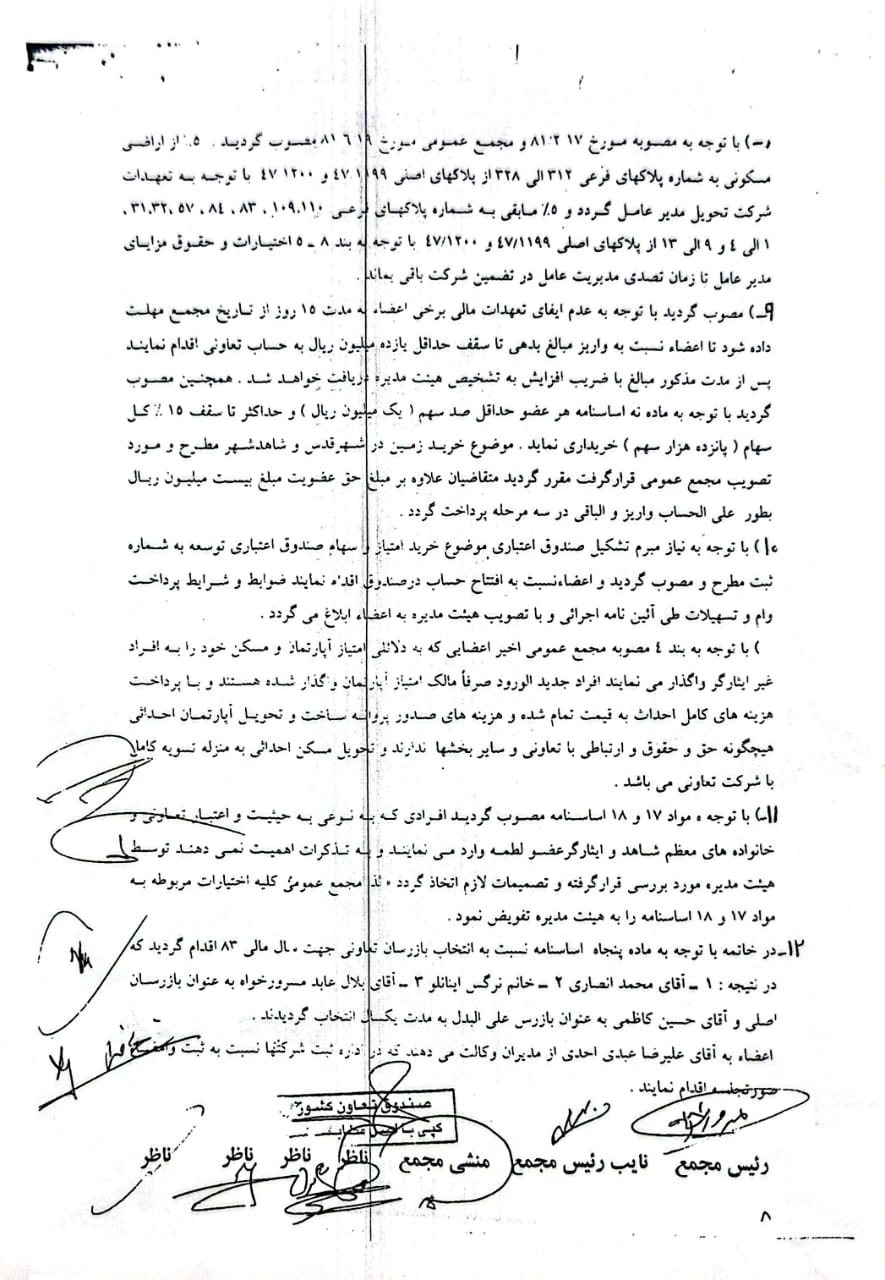 با توجه به مصوبه مورخ ۸۱/۲/۱۷ و مجمع عمومی مورخ ۸۱/۶/۱۹ مصوب گردید . ۵٪ از اراضی
مسکونی به شماره پلاکهای فرعی ۳۱۲ الی ۳۲۸ از پلاکهای اصلی ۴۷/۱۱۹۹ و ۴۷/۱۲۰۰ با توجه به تعهدات
شرکت تحویل مدیر عامل گردد و ۵٪ مابقی به شماره پلاکهای فرعی ۱۰۹،۱۱۰ ، ۸۳ ، ۸۴ ، ۵۷ ،۳۱،۳۲ ،
۱ الی ۴ و ۹ الی ۱۳ از پلاکهای اصلی ۴۷/۱۱۹۹ و ۴۷/۱۲۰۰ با توجه به بند ۸ ـ ۵ اختیارات و حقوق مزایای
مدیر عامل تا زمان تصدی مدیریت عامل در تضمین شرکت باقی بماند .
۹ـ) مصوب گردید با توجه به عدم ایفای تعهدات مالی برخی اعضاء به مدت ۱۵ روز از تاریخ مجمع مهلت
داده شود تا اعضاء نسبت به واریز مبالغ بدهی تا سقف حداقل یازده میلیون ریال به حساب تعاونی اقدام نمایند
پس از مدت مذکور مبالغ با ضریب افزایش به تشخیص هیئت مدیره دریافت خواهد شد . همچنین مصوب
گردید با توجه به ماده نه اساسنامه هر عضو حداقل صد سهم ( یک میلیون ریال ) و حداکثر تا سقف ۱۵ ٪ کل
سهام ( پانزده هزار سهم ) خریداری نماید . موضوع خرید زمین در شهرقدس و شاهدشهر مطرح و مورد
تصویب مجمع عمومی قرارگرفت مقرر گردید متقاضیان علاوه بر مبلغ حق عضویت مبلغ بیست میلیون ریال
بطور علی الحساب واریز و الباقی در سه مرحله پرداخت گردد .
۱۰) با توجه به نیاز مبرم تشکیل صندوق اعتباری موضوع خرید امتیاز و سهام صندوق اعتباری توسعه به شماره
ثبت مطرح و مصوب گردید و اعضاءنسبت به افتتاح حساب درصندوق اقدام نمایند ضوابط و شرایط پرداخت
وام و تسهیلات طی آئین نامه اجرائی و با تصویب هیئت مدیره به اعضاء ابلاغ می گردد .
) با توجه به بند ۴ مصوبه مجمع عمومی اخیر اعضایی که به دلائلی امتیاز آپارتمان و مسکن خود را به افراد
غیر ایثارگر واگذار می نمایند افراد جدید الورود صرفاً مالک امتیاز آپارتمان واگذار شده هستند و با پرداخت
هزینه های کامل احداث به قیمت تمام شده و هزینه های صدور پروانه ساخت و تحویل آپارتمان احداثی
هیچگونه حق و حقوق و ارتباطی با تعاونی و سایر بخشها ندارند و تحویل مسکن احداثی به منزله تسویه کامل
با شرکت تعاونی می باشد .
۱۱ـ) با توجه ه مواد ۱۷ و ۱۸ اساسنامه مصوب گردید افرادی که به نوعی به حیثیت و اعتبار تعاونی و
خانواده های معظم شاهد و ایثارگرعضو لطمه وارد می نمایند و به تذکرات اهمیت نمی دهند توسط
هیئت مدیره مورد بررسی قرارگرفته و تصمیمات لازم اتخاذ گردد لذا مجمع عمومی کلیه اختیارات مربوطه به
مواد ۱۷ و ۱۸ اساسنامه را به هیئت مدیره تفویض نمود .
۱۲ـ در خاتمه با توجه به ماده پنجاه اساسنامه نسبت به انتخاب بازرسان تعاونی جهت سال مالی ۸۳ اقدام گردید که
در نتیجه : ۱ ـ آقای محمد انصاری ۲ ـ خانم نرگس اینانلو ۳ ـ آقای بلال عابد مسرورخواه به عنوان بازرسان
اصلی و آقای حسین کاظمی به عنوان بازرس علی البدل به مدت یکسال انتخاب گردیدند .
اعضاء به آقای علیرضا عبدی احدی از مدیران وکالت می دهند که در اداره ثبت شرکتها نسبت به ثبت و امضاء
صورتجلسه اقدام نمایند .
صندوق تعاون کشور
کپی با اصل مطابق
رئیس مجمع نایب رئیس مجمع منشی مجمع ناظر ناظر ناظر ناظر
۸